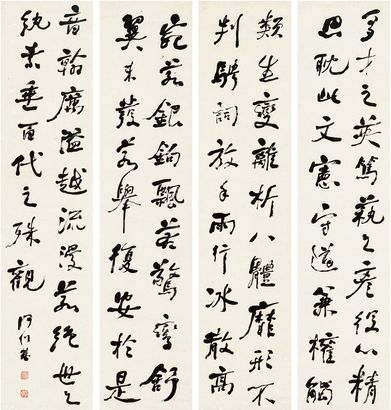 多才之英篤藝之彥役心精
思耽此文憲守道兼權觸
類生變離析八體靡形不
判騁詞放手雨行冰散高
宛若銀鉤飄若驚鸞舒
翼未發若舉復安於是
音翰厲溢越流漫著絕世之
紈素垂百代之殊觀 何紹基